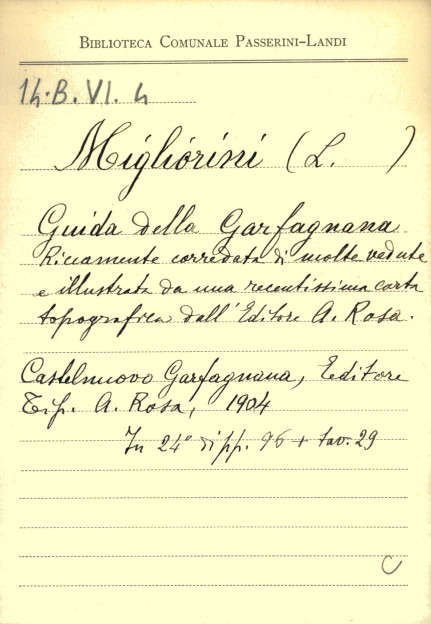 BIBLIOTECA COMUNALE PASSERINI-LANDI
14.B.VI.4
Migliorini (L. )
Guida della Garfagnana
Riccamente corredata di molte vedute
e illustrata da una recentissima carta
topografica dall'Editore A. Rosa.
Castelnuovo Garfagnana, Editore
Tip. A. Rosa, 1904
In 24° di pp. 96 + tav. 29
C